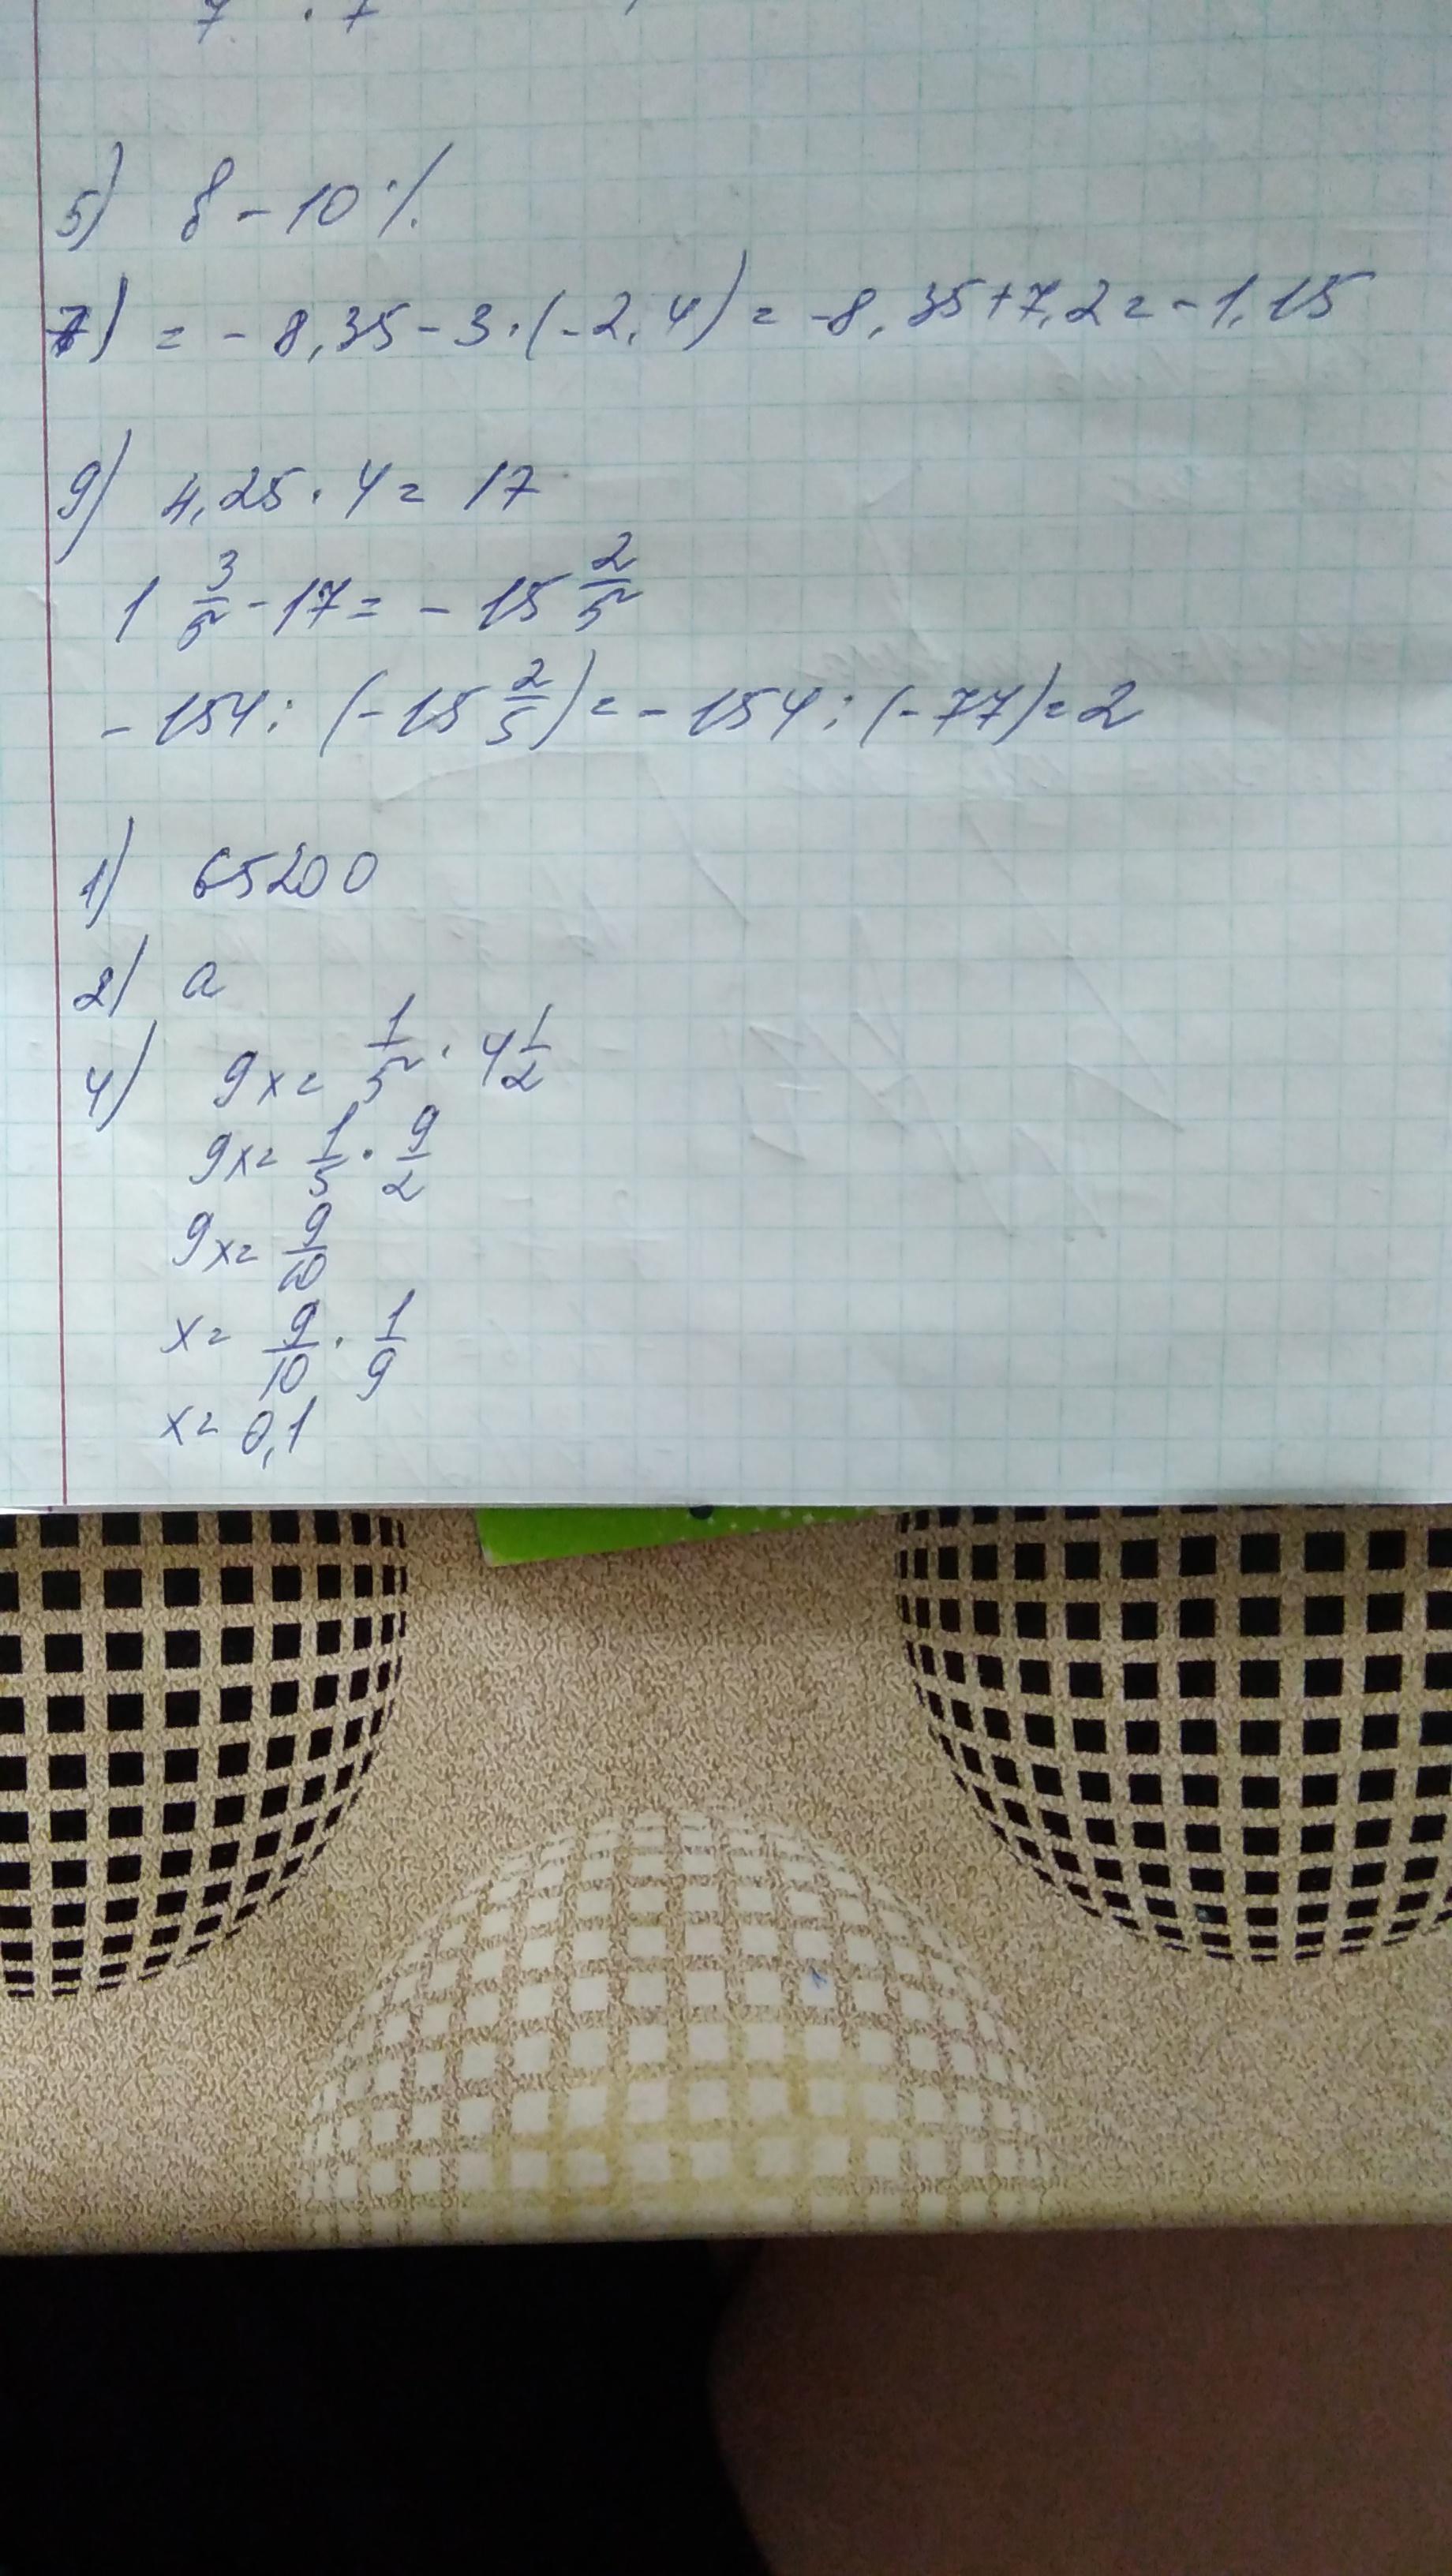 7 · 7
5) 8 - 10%
7) = - 8,35 - 3 · (-2,4) = -8,35 + 7,2 = -1,15
9) 4,25 · 4 = 17
1 3/5 - 17 = - 15 2/5
- 154 : (-15 2/5) = - 154 : (-77) = 2
1) 65200
2) a
4) 9x = 1/5 · 4 1/2
9x = 1/5 · 9/2
9x = 9/10
x = 9/10 · 1/9
x = 0,1